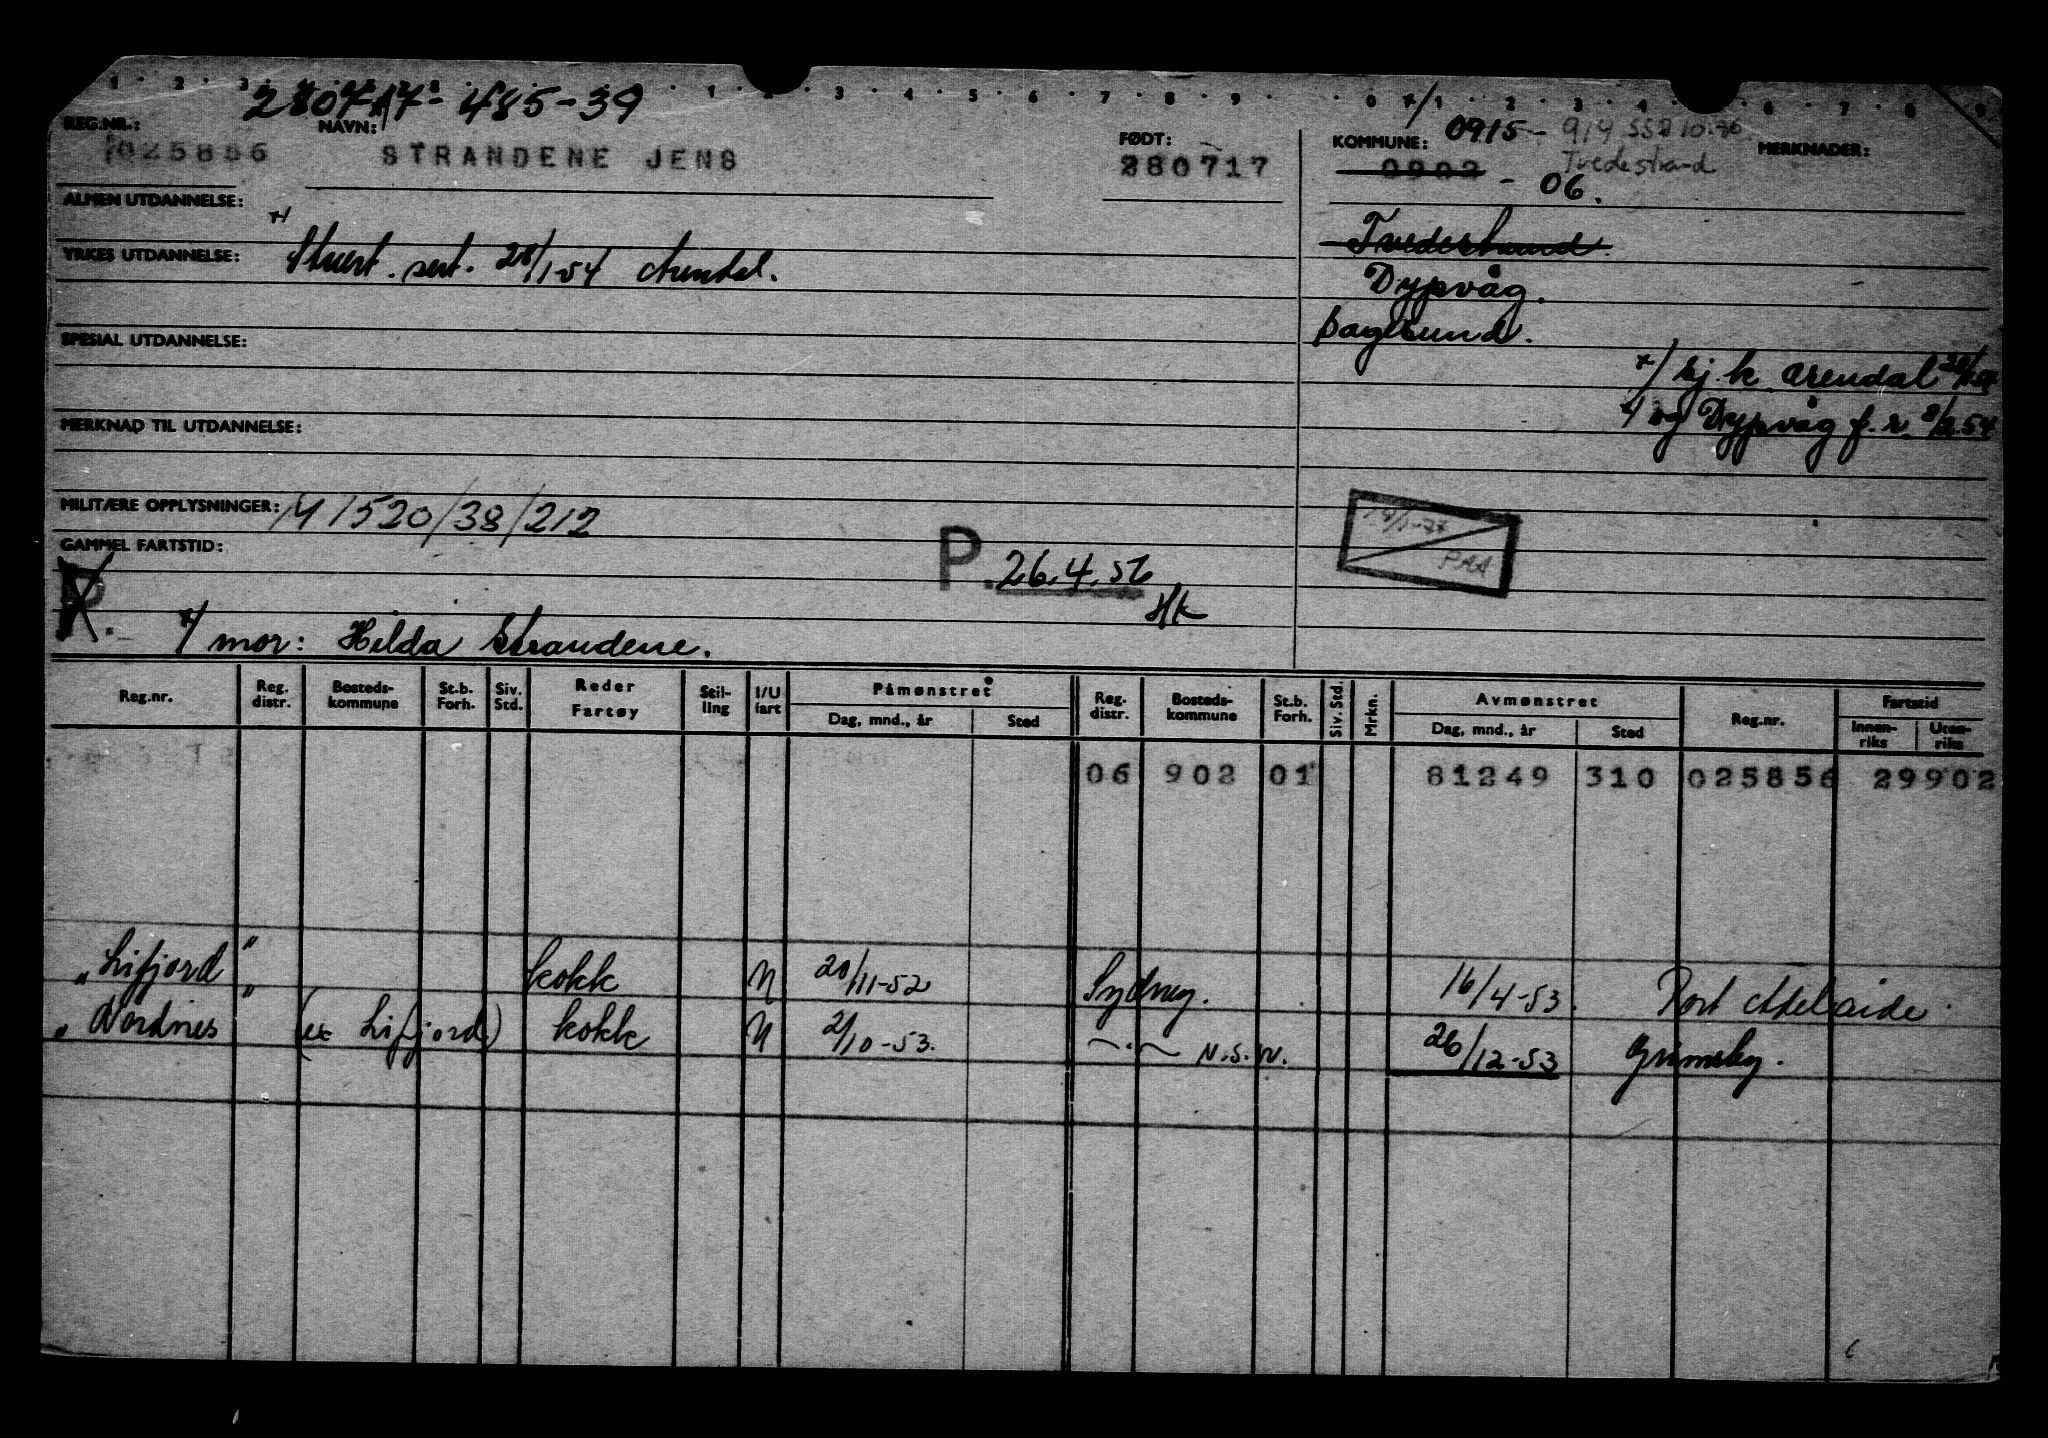 280717 - 485-39
REG.NR.: 025856
NAVN: STRANDENE JENS
FØDT: 280717
KOMMUNE: 0915 - 914 10.76
Tvedestrand
0902 - 06.
MERKNADER:
ALMEN UTDANNELSE:
YRKES UTDANNELSE: x/ Stuert. sert. 28/1-54 Arendal.
Tvedestrand.
Dypvåg.
SPESIAL UTDANNELSE:
x/ sj. k. Arendal
MERKNAD TIL UTDANNELSE:
x/ og Dypvåg f.r. 8/2.54
MILITÆRE OPPLYSNINGER: M 1520/38/212
GAMMEL FARTSTID:
P. 26.4.56
HK
PAA
P.
x/ mor: Hilda Strandene.
Reg.nr. Reg. distr. Bosteds-kommune St.b. Forh. Siv. Std. Reder Fartøy Stil-ling I/U fart Påmønstret Dag, mnd., år Sted Reg. distr. Bosteds-kommune St.b. Forh. Siv. Std. Mrkn. Avmønstret Dag, mnd., år Sted Reg.nr. Fartstid Innen-riks Uten-riks
06 902 01 81249 310 025856 29902
„Lifjord" kokk U 20/11-52 Sydney. 16/4-53. Port Adelaide.
„Nordnes" (ex Lifjord) kokk U 2/10-53. -"- N.S.W. 26/12-53 Grimsby.